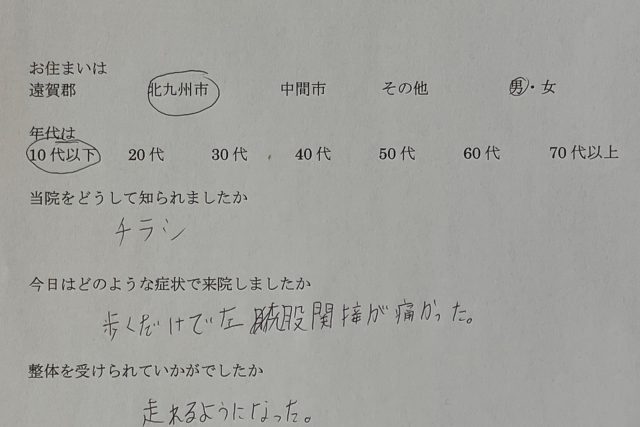 お住まいは
遠賀郡 北九州市 中間市 その他 男・女
年代は
10代以下 20代 30代 40代 50代 60代 70代以上
当院をどうして知られましたか
チラシ
今日はどのような症状で来院しましたか
歩くだけで左股関接が痛かった。
整体を受けられていかがでしたか
走れるようになった。